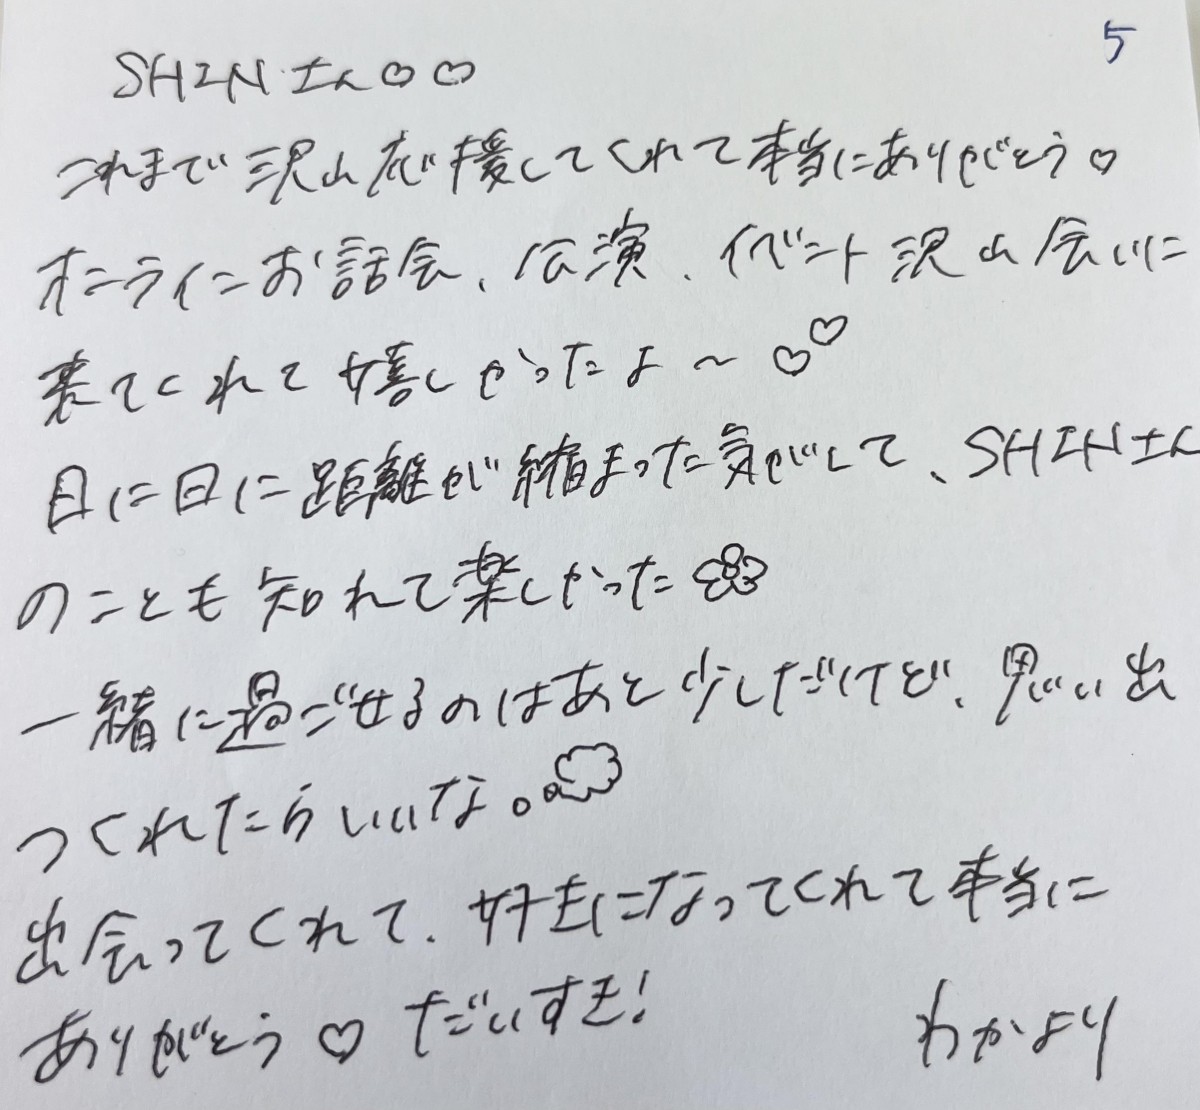 5
SHINさん♡♡
これまで沢山応援してくれて本当にありがとう♡
オンラインお話会、公演、イベント沢山会いに
来てくれて嬉しかったよ～♡♡
日に日に距離が縮まった気がして、SHINさん
のことも知れて楽しかった
一緒に過ごせるのはあと少しだけど、思い出
つくれたらいいな。
出会ってくれて、好きになってくれて本当に
ありがとう♡ だいすき!
わかより